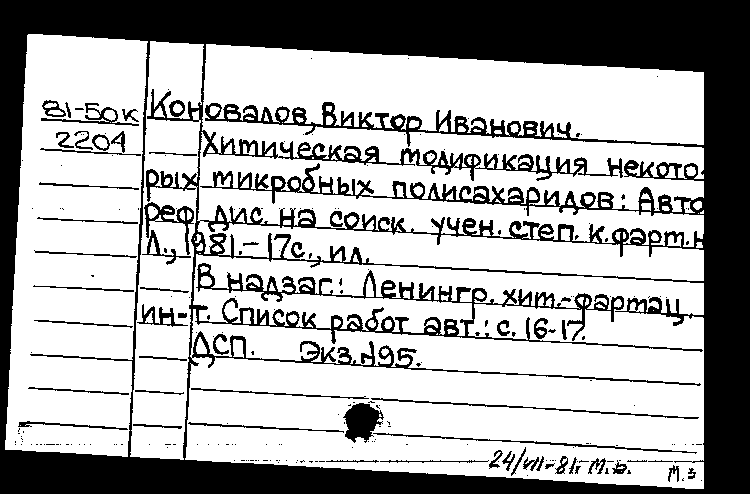 81-50к Коновалов, Виктор Иванович.
2204 Химическая модификация некото-
рых микробных полисахаридов: Авто
реф. дис. на соиск. учен. степ. к.фарм.н
Л., 1981.-17с., ил.
В надзаг.: Ленингр. хим.-фармац.
ин-т. Список работ авт.: с. 16-17.
ДСП. Экз.№95.
24/VII-81г М.З.